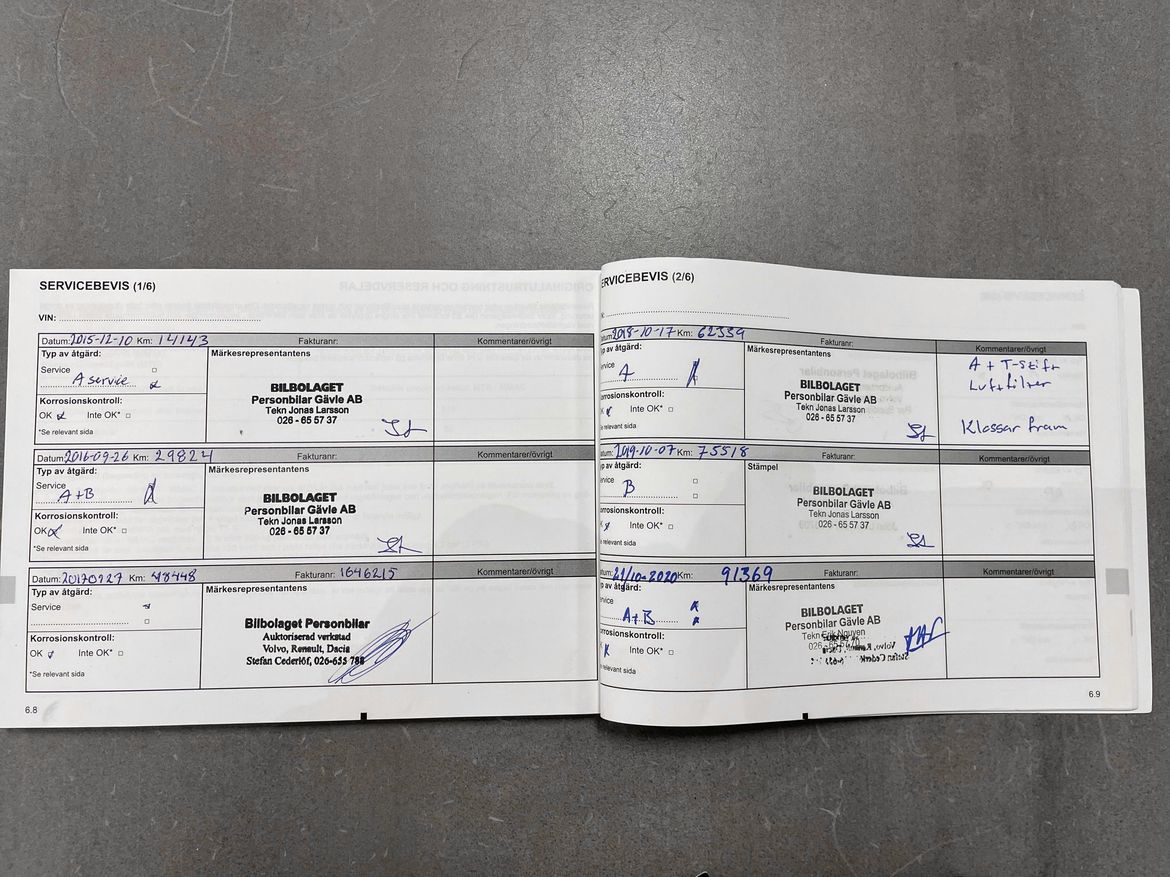 SERVICEBEVIS (1/6)
VIN:
Datum: 2015-12-10 Km: 14143 Fakturanr: Kommentarer/övrigt
Typ av åtgärd: Märkesrepresentantens
Service
A service
BILBOLAGET
Personbilar Gävle AB
Tekn Jonas Larsson
026 - 65 57 37
Korrosionskontroll:
OK Inte OK*
*Se relevant sida
Datum: 2016-09-26 Km: 29824 Fakturanr: Kommentarer/övrigt
Typ av åtgärd: Märkesrepresentantens
Service
A+B
BILBOLAGET
Personbilar Gävle AB
Tekn Jonas Larsson
026 - 65 57 37
Korrosionskontroll:
OK Inte OK*
*Se relevant sida
Datum: 20170927 Km: 48448 Fakturanr: 1646215 Kommentarer/övrigt
Typ av åtgärd: Märkesrepresentantens
Service
Bilbolaget Personbilar
Auktoriserad verkstad
Volvo, Renault, Dacia
Stefan Cederlöf, 026-655 788
Korrosionskontroll:
OK Inte OK*
*Se relevant sida
6.8
ERVICEBEVIS (2/6)
tum: 2018-10-17 Km: 62339 Fakturanr: Kommentarer/övrigt
yp av åtgärd: Märkesrepresentantens
ervice
A
BILBOLAGET
Personbilar Gävle AB
Tekn Jonas Larsson
026 - 65 57 37
A + T-stift
Luftfilter
Klossar fram
orrosionskontroll:
Inte OK*
Se relevant sida
atum: 2019-10-07 Km: 75518 Fakturanr: Kommentarer/övrigt
yp av åtgärd: Stämpel
ervice
B
BILBOLAGET
Personbilar Gävle AB
Tekn Jonas Larsson
026 - 65 57 37
orrosionskontroll:
Inte OK*
Se relevant sida
atum: 21/10-2020 Km: 91369 Fakturanr: Kommentarer/övrigt
p av åtgärd: Märkesrepresentantens
ervice
A+B
BILBOLAGET
Personbilar Gävle AB
Tekn Erik Nguyen
orrosionskontroll:
Inte OK*
e relevant sida
6.9